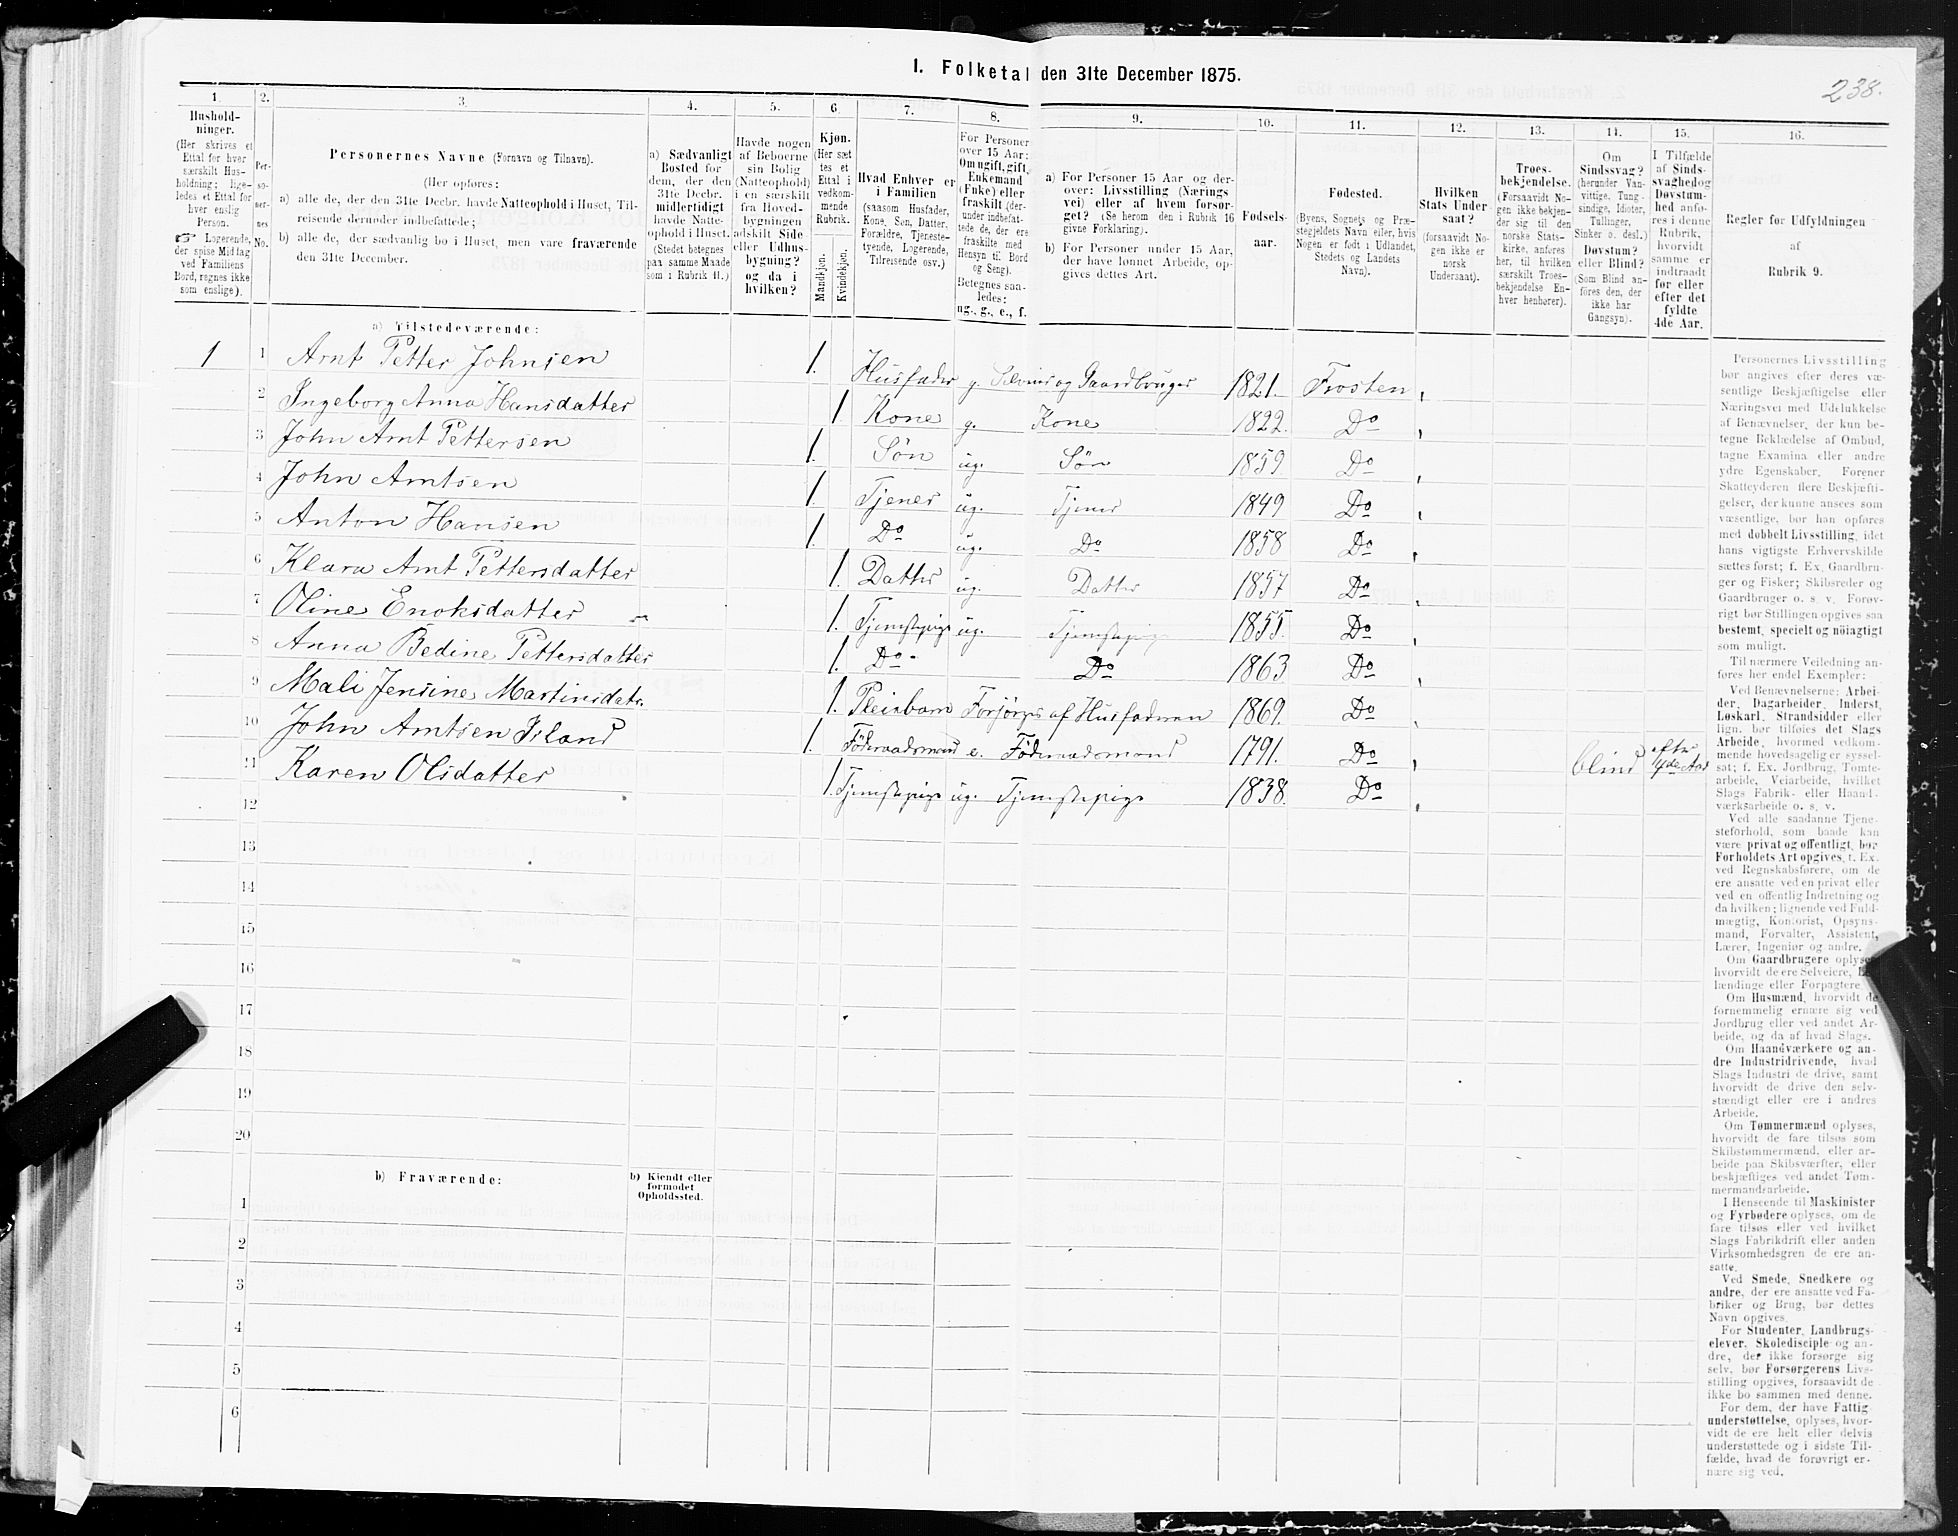 1. Folketal den 31te December 1875.
238.
1.
Hushold-
ninger.
(Her skrives et
Ettal for hver
særskilt Hus-
holdning; lige-
ledes et Ettal for
hver enslig
Person.
☞ Logerende,
der spise Middag
ved Familiens
Bord, regnes ikke
som enslige).
2.
Per-
so-
ner-
nes
No.
3.
Personernes Navne (Fornavn og Tilnavn).
(Her opføres:
a) alle de, der den 31te Decbr. havde Natteophold i Huset, Til-
reisende derunder indbefattede;
b) alle de, der sædvanlig bo i Huset, men vare fraværende
den 31te December.
4.
a) Sædvanligt
Bosted for
dem, der den
31te Decbr.
midlertidigt
havde Natte-
ophold i Huset.
(Stedet betegnes
paa samme Maade
som i Rubrik 11.)
5.
Havde nogen
af Beboerne
sin Bolig
(Natteophold)
i en særskilt
fra Hoved-
bygningen
adskilt Side
eller Udhus-
bygning?
og da i
hvilken?
6.
Kjøn.
(Her sæt
tes et
Ettal i
vedkom-
mende
Rubrik.
Mandkjøn.
Kvindekjøn.
7.
Hvad Enhver er
i Familien
(saasom Husfader,
Kone, Søn, Datter,
Forældre, Tjeneste-
tyende, Logerende,
Tilreisende osv.)
8.
For Personer
over 15 Aar:
Om ugift, gift,
Enkemand
(Enke) eller
fraskilt (der-
under indbefat-
tede de, der ere
fraskilte med
Hensyn til Bord
og Seng).
Betegnes saa-
ledes:
ug., g., e., f.
9.
a) For Personer 15 Aar og der-
over: Livsstilling (Nærings
vei) eller af hvem forsør-
get? (Se herom den i Rubrik 16
givne Forklaring).
b) For Personer under 15 Aar,
der have lønnet Arbeide, op-
gives dettes Art.
10.
Fødsels-
aar.
11.
Fødested.
(Byens, Sognets og Præ-
stegjeldets Navn eller, hvis
Nogen er født i Udlandet,
Stedets og Landets
Navn).
12.
Hvilken
Stats Under-
saat?
(forsaavidt No-
gen ikke er
norsk
Undersaat).
13.
Troes-
bekjendelse.
(Forsaavidt No-
gen ikke bekjen-
der sig til den
norske Stats-
kirke, anføres
her, til hvilken
særskilt Troes-
bekjendelse En-
hver henhører).
14.
Om
Sindssvag?
(herunder Van-
vittige, Tung-
sindige, Idioter,
Tullinger,
Sinker o. desl.)
Døvstum?
eller Blind?
(Som Blind an-
føres den, der
ikke har
Gangsyn).
15.
I Tilfælde
af Sinds-
svaghed og
Døvstum-
hed anfø-
res i denne
Rubrik,
hvorvidt
samme er
indtraadt
før eller
efter det
fyldte
4de Aar.
16.
Regler for Udfyldningen
af
Rubrik 9.
a) Tilstedeværende:
1 1 Arnt Petter Johnsen 1. Husfader g. Selveier og Gaardbruger 1821. Frosten
2 Ingeborg Anna Hansdatter 1 Kone g. Kone 1822. Do
3 John Arnt Pettersen 1. Søn ug. Søn 1859 Do
4 John Arntsen 1 Tjener ug. Tjener 1849 Do
5 Anton Hansen 1. Do ug. Do 1858 Do
6 Klara Arnt Pettersdatter 1. Datter ug. Datter 1857 Do
7 Oline Enoksdatter 1. Tjenstepige ug. Tjenstepige 1855. Do
8 Anna Bedine Pettersdatter 1. Do Do 1863 Do
9 Mali Jensine Martinsdatr. 1. Pleiebarn Forsørges af Husfaderen 1869. Do
10 John Arntsen Island 1. Föderaadsmand e. Föderaadsmand 1791. Do blind efter 4de Aar
11 Karen Olsdatter 1. Tjenstepige ug. Tjenstepige 1838. Do
12
13
14
15
16
17
18
19
20
b) Fraværende:
b) Kjendt eller
formodet
Opholdssted.
1
2
3
4
5
6
Personernes Livsstilling
bør angives efter deres væ-
sentlige Beskjæftigelse eller
Næringsvei med Udelukkelse
af Benævnelser, der kun be-
tegne Beklædelse af Ombud,
tagne Examina eller andre
ydre Egenskaber. Forener
Skatteyderen flere Beskjæfti-
gelser, der kunne ansees som
væsentlige, bør han opføres
med dobbelt Livsstilling, idet
hans vigtigste Erhvervskilde
sættes først; f. Ex. Gaardbru-
ger og Fisker; Skibsreder og
Gaardbruger o. s. v. Forøv-
rigt bør Stillingen opgives saa
bestemt, specielt og nöiagtigt
som muligt.
Til nærmere Veiledning an-
føres her endel Exempler:
Ved Benævnelserne: Arbei-
der, Dagarbeider, Inderst,
Løskarl, Strandsidder eller
lign. bør tilføies det Slags
Arbeide, hvormed vedkom-
mende hovedsagelig er syssel-
sat; f. Ex. Jordbrug, Tomte-
arbeide, Veiarbeide, hvilket
Slags Fabrik- eller Haand-
værksarbeide o. s. v.
Ved alle saadanne Tjene-
steforhold, som baade kan
være privat og offentligt, bør
Forholdets Art opgives, t. Ex.
ved Regnskabsførere, om de
ere ansatte ved en privat eller
ved en offentlig Indretning og
da hvilken; lignende ved Fuld-
mægtig, Kontorist, Opsyns-
mand, Forvalter, Assistent,
Lærer, Ingeniør og andre.
Om Gaardbrugere oplyses,
hvorvidt de ere Selveiere, Lei-
lændinge eller Forpagtere.
Om Husmænd, hvorvidt de
fornemmelig ernære sig ved
Jordbrug eller ved andet Ar-
beide, og da af hvad Slags.
Om Haandværkere og an-
dre Industridrivende, hvad
Slags Industri de drive, samt
hvorvidt de drive den selv-
stændigt eller ere i andres
Arbeide.
Om Tømmermænd oplyses,
hvorvidt de fare tilsøs som
Skibstømmermænd, eller ar-
beide paa Skibsværfter, eller
beskjæftiges ved andet Tøm-
mermandsarbeide.
I Henseende til Maskinister
og Fyrbødere oplyses, om de
fare tilsøs eller ved hvilket
Slags Fabrikdrift eller anden
Virksomhedsgren de ere an-
satte.
Ved Smede, Snedkere og
andre, der ere ansatte ved Fa-
briker og Brug, bør dettes
Navn opgives.
For Studenter, Landbrugs-
elever, Skoledisciple og an-
dre, der ikke forsørge sig
selv, bør Forsørgerens Livs-
stilling opgives, forsaavidt de
ikke bo sammen med denne.
For dem, der have Fattig-
understøttelse, oplyses, hvor-
vidt de ere helt eller delvis
understøttede og i sidste Til-
fælde, hvad de forøvrigt er-
nære sig ved.